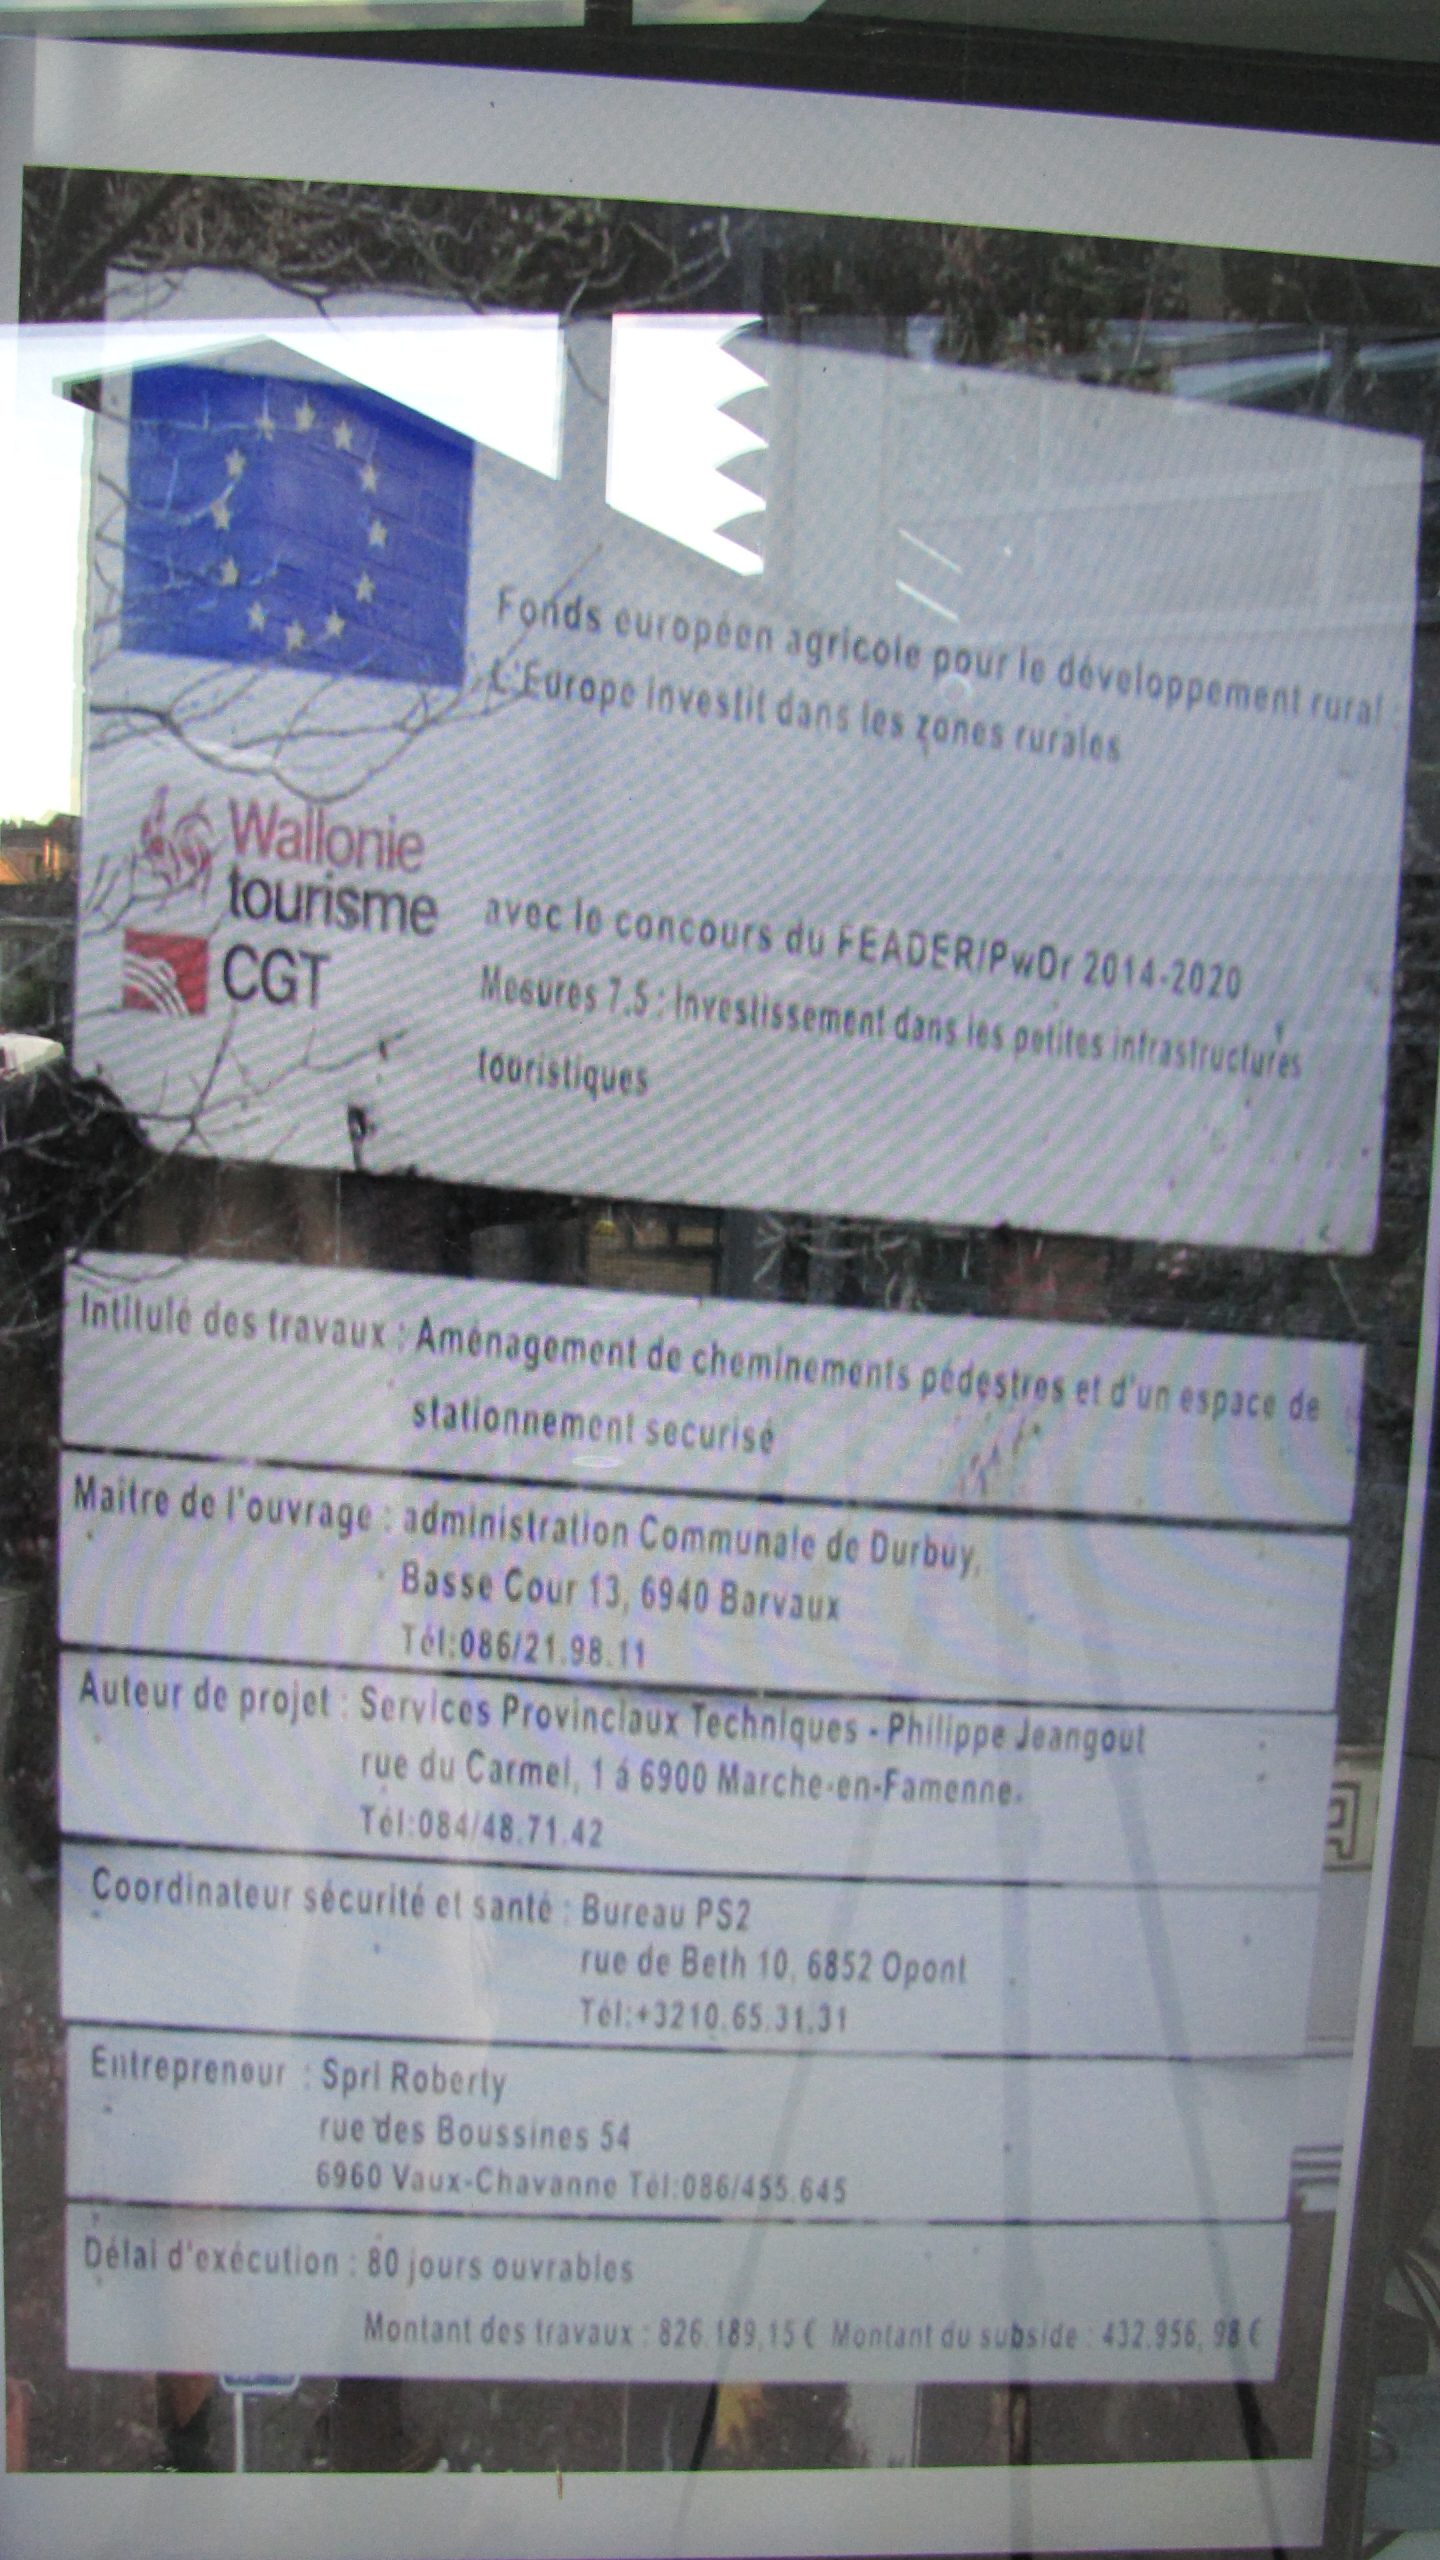 Fonds européen agricole pour le développement rural :
L'Europe investit dans les zones rurales
Wallonie
tourisme
CGT
avec le concours du FEADER/PwDr 2014-2020
Mesures 7.5 : Investissement dans les petites infrastructures
touristiques
Intitulé des travaux : Aménagement de cheminements pédestres et d'un espace de
stationnement securisé
Maitre de l'ouvrage : administration Communale de Durbuy,
Basse Cour 13, 6940 Barvaux
Tél:086/21.98.11
Auteur de projet : Services Provinciaux Techniques - Philippe Jeangout
rue du Carmel, 1 á 6900 Marche-en-Famenne.
Tél:084/48.71.42
Coordinateur sécurité et santé : Bureau PS2
rue de Beth 10, 6852 Opont
Tél:+3210.65.31.31
Entrepreneur : Sprl Roberty
rue des Boussines 54
6960 Vaux-Chavanne Tél:086/455.645
Délai d'exécution : 80 jours ouvrables
Montant des travaux : 826.189,15 € Montant du subside : 432.956, 98 €